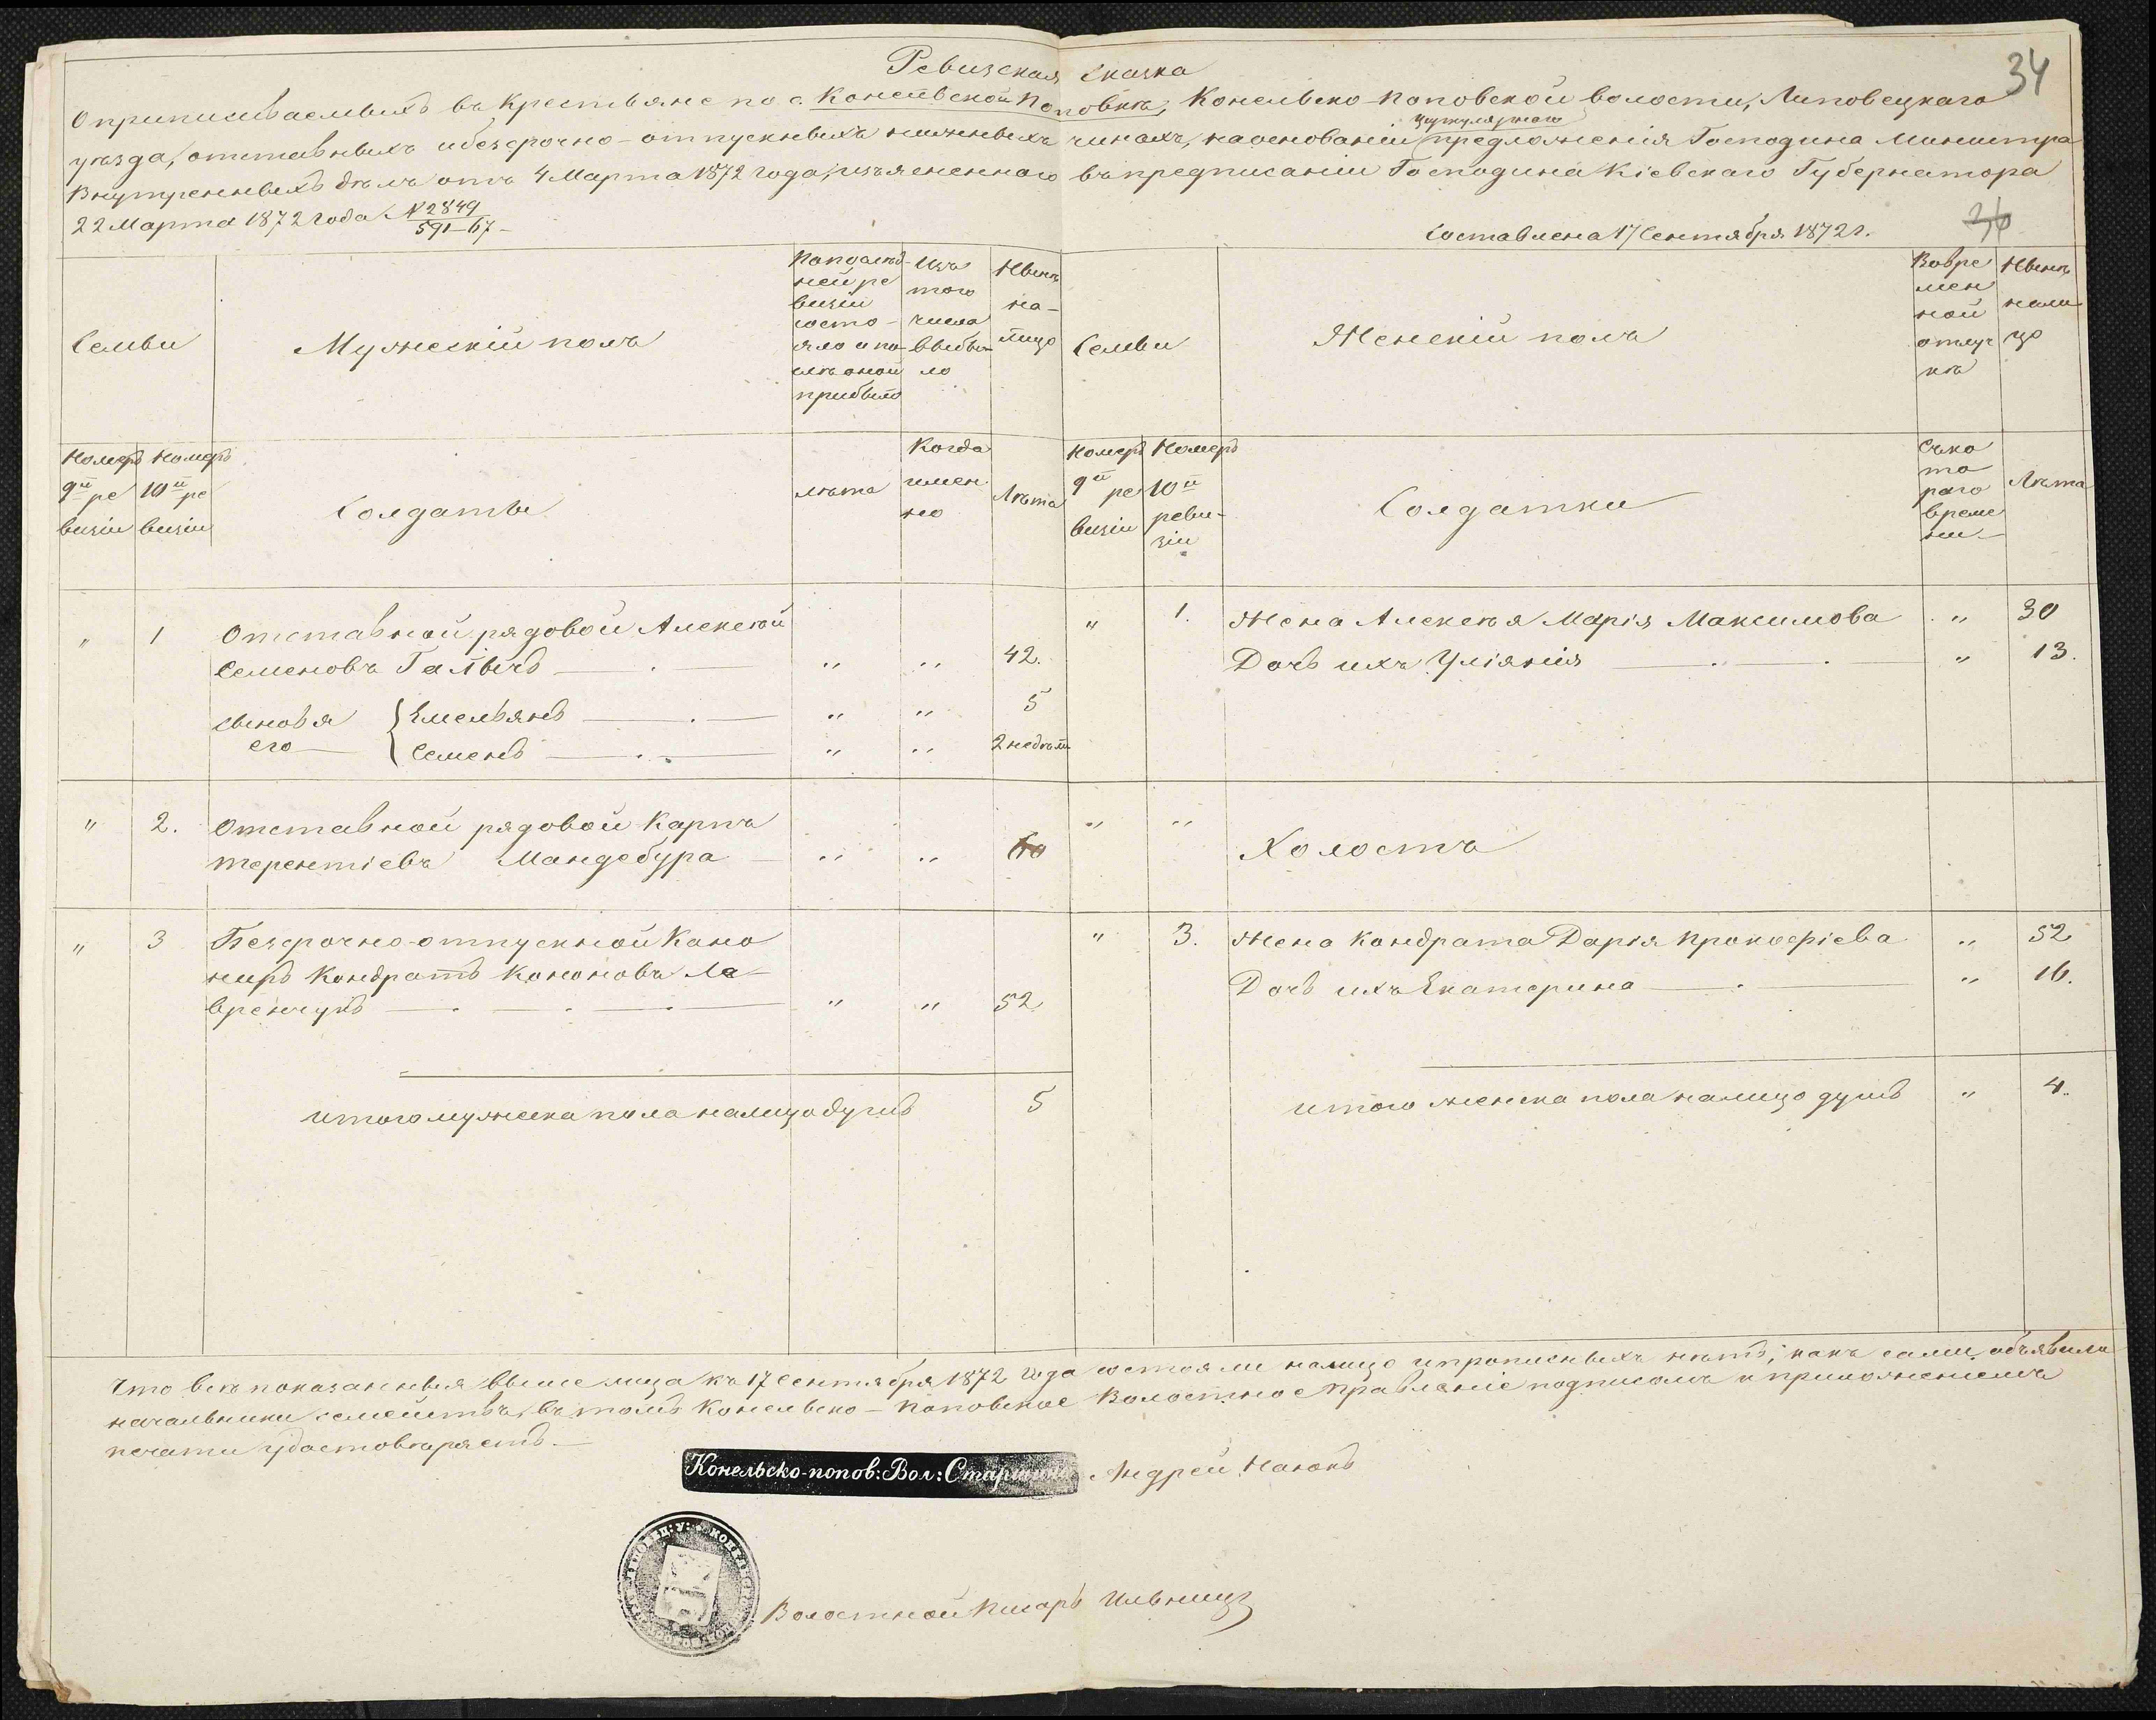 34
Ревизская сказка
О приписываемыхъ въ Крестьяне по с. Конельской Поповкѣ, Конельско-Поповской волости, Липовецкаго
циркулярнаго
уѣзда, отставныхъ и безсрочно-отпускныхъ нижныхъ чинахъ, на основаніи предложенія Господина Министра
Внутренныхъ дѣлъ отъ 4 Марта 1872 года, изъясненнаго въ предписаніи Господина Кіевскаго Губернатора
22 Марта 1872 года № 2849
591–67 –
Составлена 17 Сентября 1872 г.
Семьи
Мужескій полъ
По послѣд-
ней ре
визіи
состо-
яло и по-
слѣ оной
прибыло
Изъ
того
числа
выбы-
ло
Нынѣ
на-
лицо
Семьи
Женскій полъ
Вовре
мен
ной
отлуч
кѣ
Нынѣ
нали
цо
Номеръ
9й ре
визіи
Номеръ
10й ре
визіи
Солдаты
лѣта
Когда
имен
но
Лѣта
Номеръ
9й ре
визіи
Номеръ
10й
реви-
зіи
Солдатки
Съ ко
то
раго
време
ни –
Лѣта
" 1 Отставной рядовой Алексѣй
Семеновъ Галычъ " " 42.
сыновя { Емельянъ " " 5
его { Семенъ " " 2 недѣли
" 1. Жена Алексѣя Марія Максимова " 30
Дочь ихъ Уліянія " 13.
" 2. Отставной рядовой Карпъ
Терентіевъ Мандебура " " 60
" " Холостъ
" 3 Безсрочно-отпускной Кано
ниръ Кондратъ Кононовъ Ла-
вренчукъ " " 52
" 3. Жена Кондрата Дарія Прокофіева " 52
Дочь ихъ Екатерина " 16.
итого мужеска пола налицо душъ 5
итого женска пола налицо душъ " 4.
Что всѣ показанныя выше лица къ 17 Сентября 1872 года состояли налицо и прописныхъ нѣтъ, какъ сами объявили
начальники семействъ, въ томъ Конельско-Поповское Волостное Правленіе подписомъ и приложеніемъ
печати удостовѣряетъ.
Конельско-попов: Вол: Старшина Андрей
Волостной Писарь